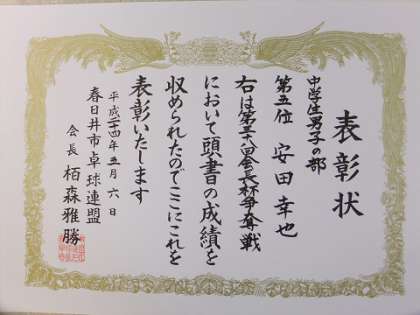 表彰状
中学生男子の部
第五位 安田幸也
右は第三十八回会長杯争奪戦
において頭書の成績を
収められたのでここにこれを
表彰いたします
平成二十四年五月六日
春日井市卓球連盟
会長 栢森雅勝